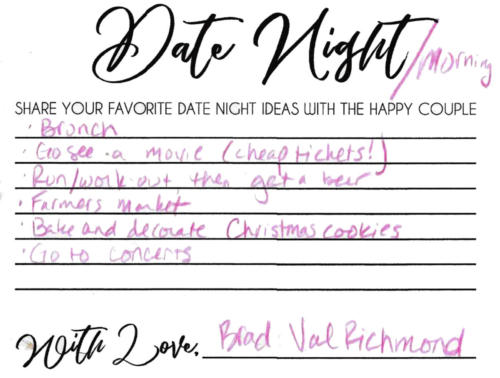 Date Night/Morning
SHARE YOUR FAVORITE DATE NIGHT IDEAS WITH THE HAPPY COUPLE
· Brunch
· Go see a movie (cheap tickets!)
· Run/work out then get a beer
· Farmers market
· Bake and decorate Christmas cookies
· Go to concerts
With Love, Brad : Val Richmond